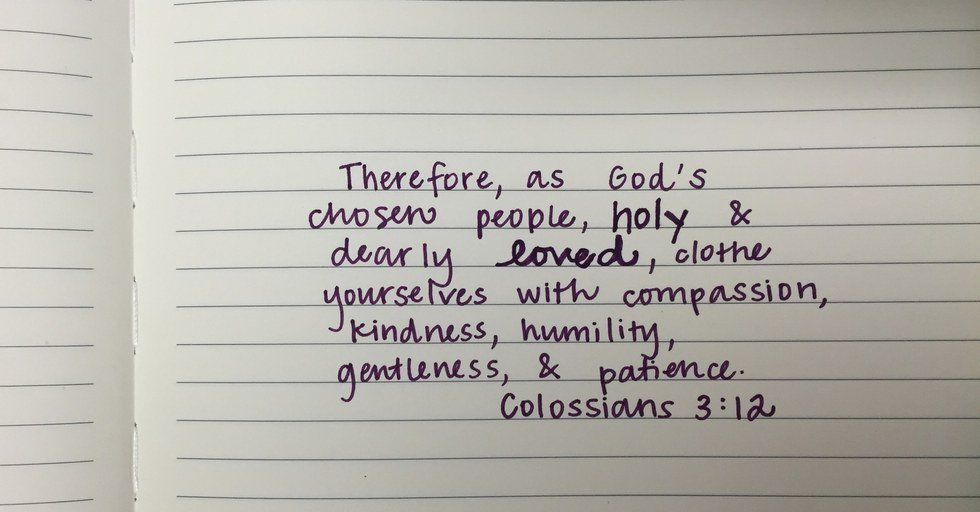 Therefore, as God's
chosen people, holy &
dearly loved, clothe
yourselves with compassion,
kindness, humility,
gentleness, & patience.
Colossians 3:12